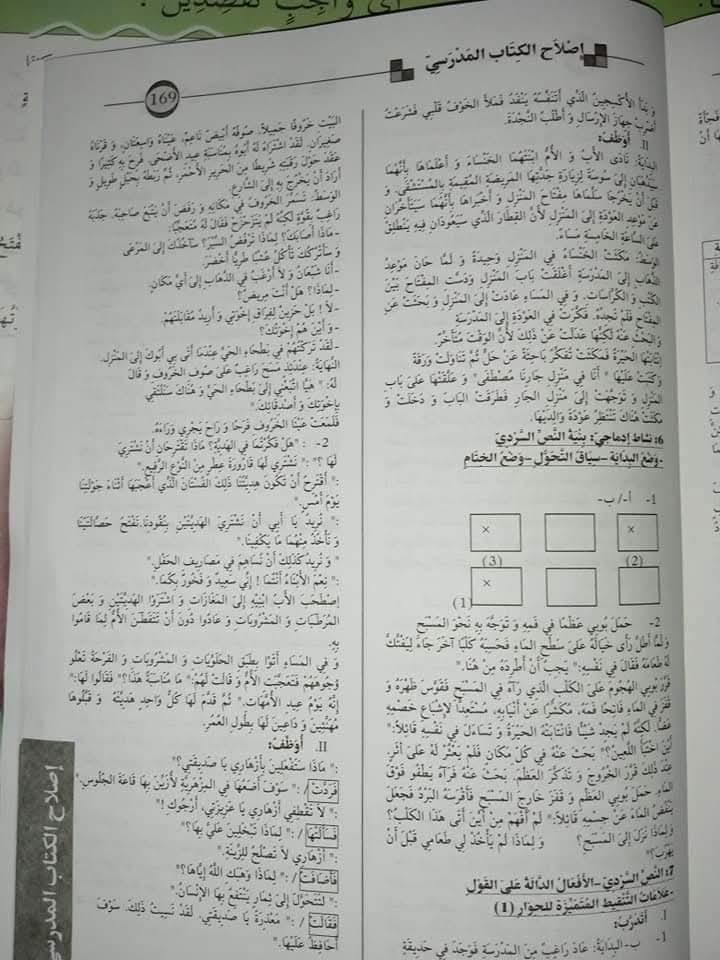 أي واجب تقصدين
إصْلاَح الكِتَاب المَدْرَسِيّ
169
وَ بَدَأَ الأُكْسِجِينُ الَّذِي أَتَنَفَّسُهُ يَنْفَدُ فَمَلَأَ الخَوْفُ قَلْبِي فَشَرَعْتُ
أَضْرِبُ جِهَازَ الإِرْسَالِ وَ أَطْلُبُ النَّجْدَةَ.
II. أُوَظِّفُ:
البِدَايَةُ: نَادَى الأَبُ وَ الأُمُّ ابْنَتَهُمَا الخَنْسَاءَ وَ أَعْلَمَاهَا بِأَنَّهُمَا
سَيَذْهَبَانِ إِلَى سُوسَةَ لِزِيَارَةِ جَدَّتِهَا المَرِيضَةِ المُقِيمَةِ بِالمُسْتَشْفَى. وَ
قَبْلَ أَنْ يَخْرُجَا سَلَّمَاهَا مِفْتَاحَ المَنْزِلِ وَ أَخْبَرَاهَا بِأَنَّهُمَا سَيَتَأَخَّرَانِ
عَنْ مَوْعِدِ العَوْدَةِ إِلَى المَنْزِلِ لأَنَّ القِطَارَ الَّذِي سَيَعُودَانِ فِيهِ يَنْطَلِقُ
عَلَى السَّاعَةِ الخَامِسَةِ مَسَاءً.
الوَسَطُ: مَكَثَتْ الخَنْسَاءُ فِي المَنْزِلِ وَحِيدَةً وَ لَمَّا حَانَ مَوْعِدُ
الذَّهَابِ إِلَى المَدْرَسَةِ أَغْلَقَتْ بَابَ المَنْزِلِ وَدَسَّتِ المِفْتَاحَ بَيْنَ
الكُتُبِ وَ الكُرَّاسَاتِ. وَ فِي المَسَاءِ عَادَتْ إِلَى المَنْزِلِ وَ بَحَثَتْ عَنِ
المِفْتَاحِ فَلَمْ تَجِدْهُ. فَكَّرَتْ فِي العَوْدَةِ إِلَى المَدْرَسَةِ
وَ البَحْثِ عَنْهُ لَكِنَّهَا عَدَلَتْ عَنْ ذَلِكَ لأَنَّ الوَقْتَ مُتَأَخِّرٌ.
اِنْتَابَتْهَا الحَيْرَةُ فَمَكَثَتْ تُفَكِّرُ بَاحِثَةً عَنْ حَلٍّ ثُمَّ تَنَاوَلَتْ وَرَقَةً
وَ كَتَبَتْ عَلَيْهَا " أَنَا فِي مَنْزِلِ جَارِنَا مُصْطَفَى" وَ عَلَّقَتْهَا عَلَى بَابِ
المَنْزِلِ وَ تَوَجَّهَتْ إِلَى مَنْزِلِ الجَارِ فَطَرَقَتْ البَابَ وَ دَخَلَتْ وَ
مَكَثَتْ هُنَاكَ تَنْتَظِرُ عَوْدَةَ وَالِدَيْهَا.
6: نَشَاط إِدماجيّ: بِنْيَةُ النَّصِّ السَّرْدِيّ
-وَضْعُ البِدَايَةِ -سِيَاقُ التَّحَوُّلِ -وَضْعُ الخِتَامِ
1- أ-/ ب-
× ×
(3) (2)
×
(1)
2- حَمَلَ بُوبِي عَظْمًا فِي فَمِهِ وَ تَوَجَّهَ بِهِ نَحْوَ المَسْبَحِ
وَ لَمَّا أَطَلَّ رَأَى خَيَالَهُ عَلَى سَطْحِ المَاءِ فَحَسِبَهُ كَلْبًا آخَرَ جَاءَ لِيَفْتَكَّ
لَهُ طَعَامَهُ فَقَالَ فِي نَفْسِهِ:" يَجِبُ أَنْ أَطْرُدَهُ مِنْ هُنَا."
قَرَّرَ بُوبِي الهُجُومَ عَلَى الكَلْبِ الَّذِي رَآهُ فِي المَسْبَحِ فَقَوَّسَ ظَهْرَهُ وَ
قَفَزَ فِي المَاءِ فَاتِحًا فَمَهُ، مُكَشِّرًا عَنْ أَنْيَابِهِ، مُسْتَعِدًّا لإِشْبَاعِ خَصْمِهِ
عَضًّا. لَكِنَّهُ لَمْ يَجِدْ شَيْئًا فَانْتَابَتْهُ الحَيْرَةُ وَ تَسَاءَلَ فِي نَفْسِهِ قَائِلاً:"
أَيْنَ اخْتَبَأَ اللَّعِينُ؟" بَحَثَ عَنْهُ فِي كُلِّ مَكَانٍ فَلَمْ يَعْثُرْ لَهُ عَلَى أَثَرٍ
عِنْدَ ذَلِكَ قَرَّرَ الخُرُوجَ وَ تَذَكَّرَ العَظْمَ. بَحَثَ عَنْهُ فَرَآهُ يَطْفُو فَوْقَ
المَاءِ. حَمَلَ بُوبِي العَظْمَ وَ قَفَزَ خَارِجَ المَسْبَحِ فَأَقْرَسَهُ البَرْدُ فَجَعَلَ
يَنْفُضُ المَاءَ عَنْ جِسْمِهِ قَائِلاً:" لَمْ أَفْهَمْ مِنْ أَيْنَ أَتَى هَذَا الكَلْبُ؟
وَ لِمَاذَا نَزَلَ إِلَى المَسْبَحِ؟ وَ لِمَاذَا لَمْ يَأْخُذْ لِي طَعَامِي قَبْلَ أَنْ
يَهْرُبَ؟"
7: النَّصُّ السَّرْدِيّ -الأَفْعَالُ الدَّالَّةُ عَلَى القَوْلِ
-عَلاَمَاتُ التَّنْقِيطِ المُتَمَيِّزَة لِلحِوَارِ (1)
I. أَتَدَرَّبُ:
1- ب-البِدَايَةُ: عَادَ رَاغِبٌ مِنَ المَدْرَسَةِ فَوَجَدَ فِي حَدِيقَةِ
البَيْتِ خَرُوفًا جَمِيلاً. صُوفُهُ أَبْيَضُ نَاعِمٌ، عَيْنَاهُ وَاسِعَتَانِ، وَ قَرْنَاهُ
صَغِيرَانِ. لَقَدْ اشْتَرَاهُ لَهُ أَبُوهُ بِمُنَاسَبَةِ عِيدِ الأَضْحَى. فَرِحَ بِهِ كَثِيرًا وَ
عَقَدَ حَوْلَ رَقَبَتِهِ شَرِيطًا مِنَ الحَرِيرِ الأَحْمَرِ، ثُمَّ رَبَطَهُ بِحَبْلٍ طَوِيلٍ وَ
أَرَادَ أَنْ يَخْرُجَ بِهِ إِلَى الشَّارِعِ.
الوَسَطُ: تَسَمَّرَ الخَرُوفُ فِي مَكَانِهِ وَ رَفَضَ أَنْ يَتْبَعَ صَاحِبَهُ. جَذَبَهُ
رَاغِبٌ بِقُوَّةٍ لَكِنَّهُ لَمْ يَتَزَحْزَحْ فَقَالَ لَهُ مُتَعَجِّبًا:
-مَاذَا أَصَابَكَ؟ لِمَاذَا تَرْفُضُ السَّيْرَ؟ سَآخُذُكَ إِلَى المَرْعَى
وَ سَأَتْرُكُكَ تَأْكُلُ عُشْبًا طَرِيًّا أَخْضَرَ.
-أَنَا شَبْعَانٌ وَ لاَ أَرْغَبُ فِي الذَّهَابِ إِلَى أَيِّ مَكَانٍ.
-لِمَاذَا؟ هَلْ أَنْتَ مَرِيضٌ؟
-لاَ ! بَلْ حَزِينٌ لِفِرَاقِ إِخْوَتِي وَ أُرِيدُ مُقَابَلَتَهُمْ.
-وَ أَيْنَ هُمْ إِخْوَتُكَ؟
-لَقَدْ تَرَكْتُهُمْ فِي بَطْحَاءِ الحَيِّ عِنْدَمَا أَتَى بِي أَبُوكَ إِلَى المَنْزِلِ.
النِّهَايَةُ: عِنْدَئِذٍ مَسَحَ رَاغِبٌ عَلَى صُوفِ الخَرُوفِ وَ قَالَ
لَهُ: " هَيَّا اتْبَعْنِي إِلَى بَطْحَاءِ الحَيِّ وَ هُنَاكَ سَنَلْتَقِي
بِإِخْوَتِكَ وَ أَصْدِقَائِكَ."
فَلَمَعَتْ عَيْنَا الخَرُوفِ فَرَحًا وَ رَاحَ يَجْرِي وَرَاءَهُ.
2- : "هَلْ فَكَّرْتُمَا فِي الهَدِيَّةِ؟ مَاذَا تَقْتَرِحَانِ أَنْ نَشْتَرِيَ
لَهَا ؟" :" نَشْتَرِي لَهَا قَارُورَةَ عِطْرٍ مِنَ النَّوْعِ الرَّفِيعِ."
:" أَقْتَرِحُ أَنْ تَكُونَ هَدِيَّتُنَا ذَلِكَ الفُسْتَانَ الَّذِي أَعْجَبَهَا أَثْنَاءَ جَوْلَتِنَا
يَوْمَ أَمْسِ."
:" نُرِيدُ يَا أَبِي أَنْ نَشْتَرِيَ الهَدِيَّتَيْنِ بِنُقُودِنَا. نَفْتَحُ حَصَّالَتَيْنَا
وَ نَأْخُذُ مِنْهُمَا مَا يَكْفِينَا."
" وَ نُرِيدُ كَذَلِكَ أَنْ نُسَاهِمَ فِي مَصَارِيفِ الحَفْلِ."
:" نِعْمَ الأَبْنَاءُ أَنْتُمَا ! إِنِّي سَعِيدٌ وَ فَخُورٌ بِكُمَا."
اِصْطَحَبَ الأَبُ ابْنَيْهِ إِلَى المَغَازَاتِ وَ اشْتَرَوْا الهَدِيَّتَيْنِ وَ بَعْضَ
المُرَطِّبَاتِ وَ المَشْرُوبَاتِ وَ عَادُوا دُونَ أَنْ تَتَفَطَّنَ الأُمُّ لِمَا قَامُوا
بِهِ.
وَ فِي المَسَاءِ أَتَوْا بِطَبَقِ الحَلَوِيَّاتِ وَ المَشْرُوبَاتِ وَ الفَرْحَةُ تَعْلُو
وُجُوهَهُمْ فَتَعَجَّبَتِ الأُمُّ وَ قَالَتْ لَهُمْ:" مَا مُنَاسَبَةُ هَذَا؟" فَقَالُوا لَهَا:"
إِنَّهُ يَوْمُ عِيدِ الأُمَّهَاتِ." ثُمَّ قَدَّمَ لَهَا كُلُّ وَاحِدٍ هَدِيَّتَهُ وَ قَبَّلُوهَا
مُهَنِّئِينَ وَ دَاعِينَ لَهَا بِطُولِ العُمُرِ.
II. أُوَظِّفُ:
:" مَاذَا سَتَفْعَلِينَ بِأَزْهَارِي يَا صَدِيقَتِي؟"
فَرَدَّتْ / :" سَوْفَ أَضَعُهَا فِي المَزْهَرِيَّةِ لأُزَيِّنَ بِهَا قَاعَةَ الجُلُوسِ."
:" لاَ تَقْطِفِي أَزْهَارِي يَا عَزِيزَتِي، أَرْجُوكِ !"
فَسَأَلَتْهَا / :" لِمَاذَا تَبْخَلِينَ عَلَيَّ بِهَا؟"
:" أَزْهَارِي لاَ تَصْلُحُ لِلزِّينَةِ."
فَأَضَافَتْ / :" لِمَاذَا وَهَبَكِ اللَّهُ إِيَّاهَا؟"
:" لِتَتَحَوَّلَ إِلَى ثِمَارٍ يَنْتَفِعُ بِهَا الإِنْسَانُ."
فَقَالَتْ / :" مَعْذِرَةً يَا صَدِيقَتِي. لَقَدْ نَسِيتُ ذَلِكَ. سَوْفَ
أُحَافِظُ عَلَيْهَا."
إصلاح الكتاب المدرسي